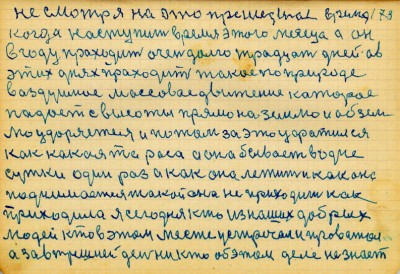 не смотря на это прешествия взгляд 173
когда наступит время этого месяца а он
в году проходит очен долго тридцат дней аб
этих днях проходит такое по природе
ваздушное массовае движение каторае
падает с высоты прямо на землю и аб зем
лю ударяется и потом за это ухватился
как какая та раса а она бывает в одне
сутки один раз а как она летит и как она
поднимается такой она не приходит как
приходила я сегодня кто из наших добрых
людей кто в этом месте встречали и провожал
а завтрешнй ден никто об этом деле не знает